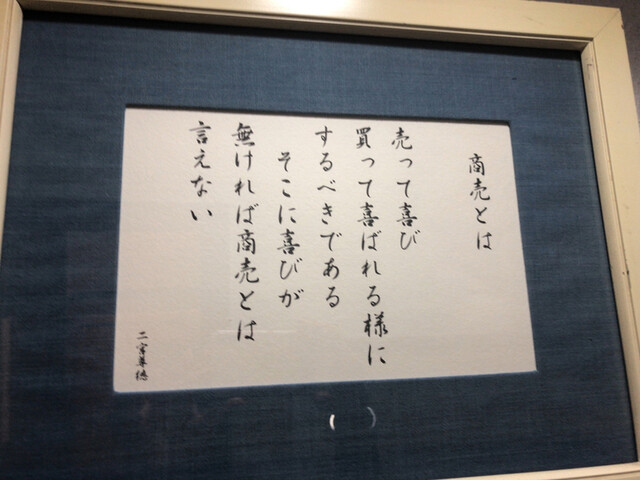 商売とは
売って喜び
買って喜ばれる様に
するべきである
そこに喜びが
無ければ商売とは
言えない
二宮尊徳